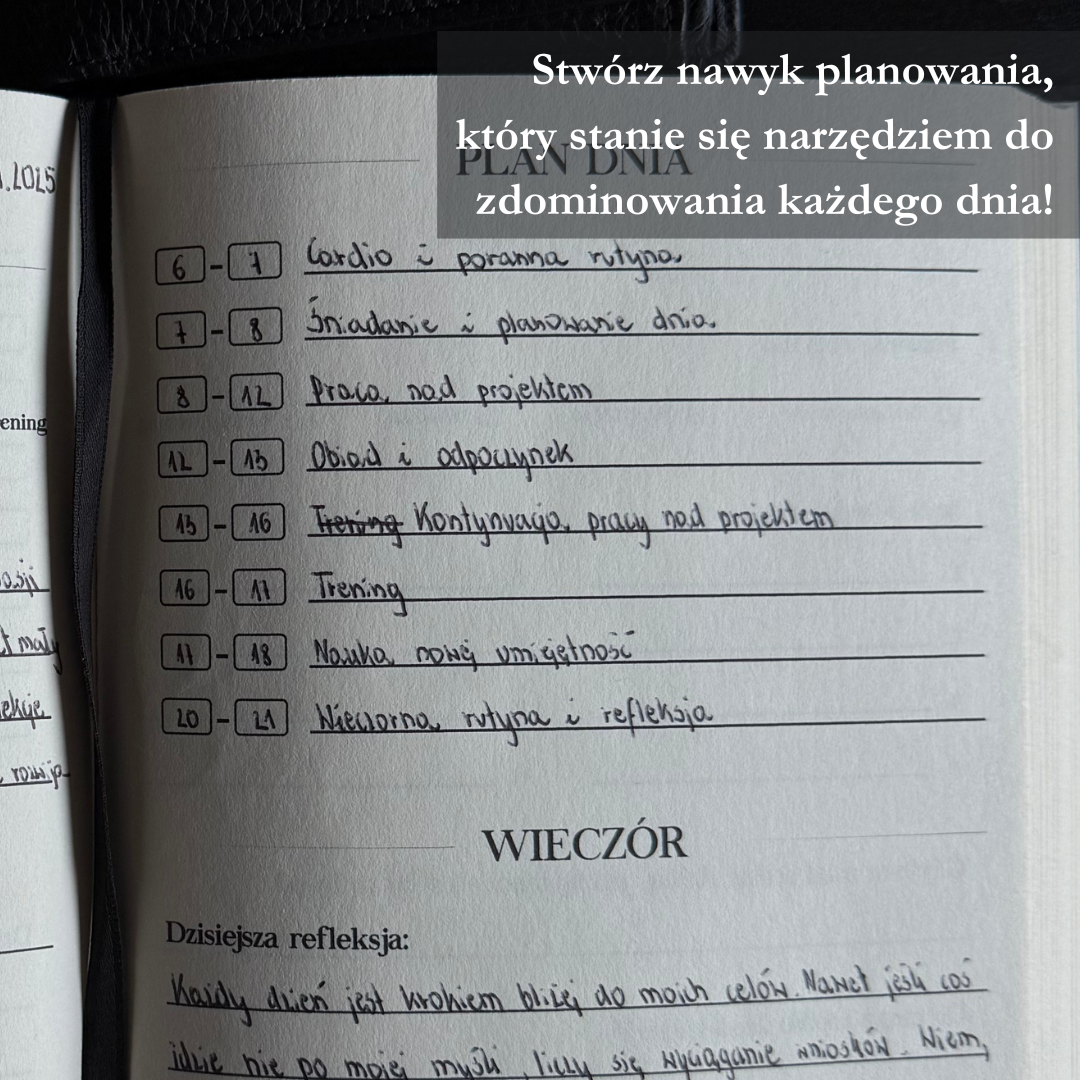 Stwórz nawyk planowania,
który stanie się narzędziem do
zdominowania każdego dnia!
PLAN DNIA
6 - 7 Cardio i poranna rutyna
7 - 8 Śniadanie i planowanie dnia
8 - 12 Praca nad projektem
12 - 13 Obiad i odpoczynek
13 - 16 Trening Kontynuacja pracy nad projektem
16 - 17 Trening
17 - 18 Nauka nowej umiejętność
20 - 21 Wieczorna rutyna i refleksja
WIECZÓR
Dzisiejsza refleksja:
Każdy dzień jest krokiem bliżej do moich celów. Nawet jeśli coś
idzie nie po mojej myśli, liczy się wyciąganie wniosków. Wiem,
.2025
ening
mały